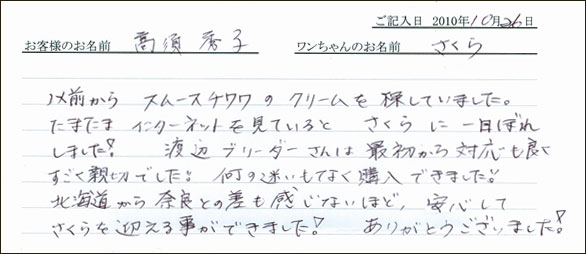 ご記入日 2010年10月26日
お客様のお名前 高須 秀子 ワンちゃんのお名前 さくら
以前から スムースチワワ の クリームを 探していました。
たまたま インターネットを 見ていると さくら に 一目ぼれ
しました! 渡辺 ブリーダー さんは 最初から 対応も 良く
すごく 親切でした! 何の 迷いもなく 購入 できました!
北海道 から 奈良 との 差も 感じないほど、 安心して
さくらを 迎える 事が できました! ありがとうございました!